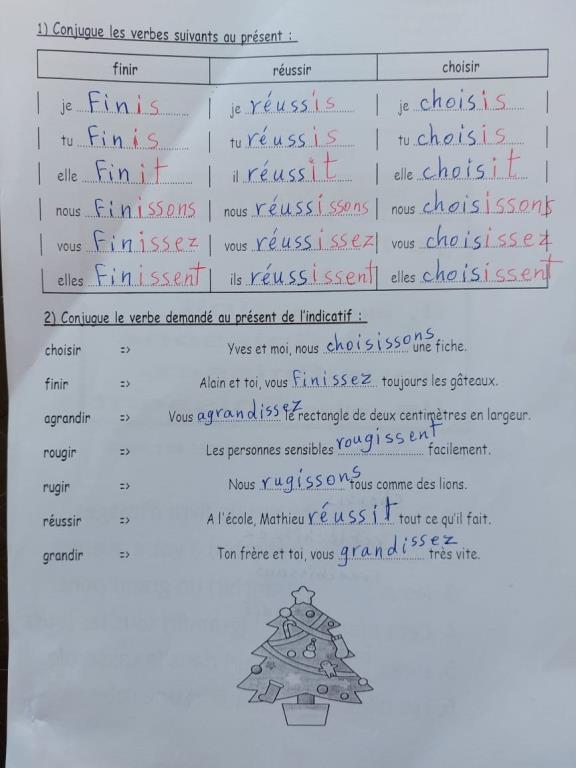 1) Conjugue les verbes suivants au présent :
finir réussir choisir
je finis je réussis je choisis
tu finis tu réussis tu choisis
elle finit il réussit elle choisit
nous finissons nous réussissons nous choisissons
vous finissez vous réussissez vous choisissez
elles finissent ils réussissent elles choisissent
2) Conjugue le verbe demandé au présent de l'indicatif :
choisir => Yves et moi, nous choisissons une fiche.
finir => Alain et toi, vous finissez toujours les gâteaux.
agrandir => Vous agrandissez le rectangle de deux centimètres en largeur.
rougir => Les personnes sensibles rougissent facilement.
rugir => Nous rugissons tous comme des lions.
réussir => A l'école, Mathieu réussit tout ce qu'il fait.
grandir => Ton frère et toi, vous grandissez très vite.